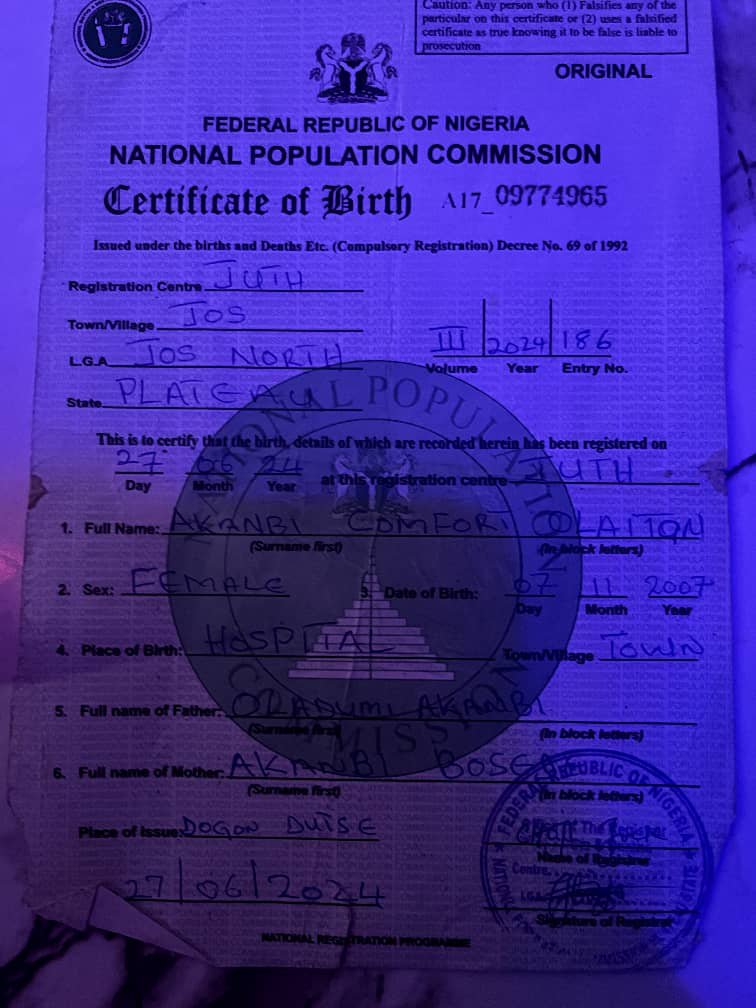 Caution: Any person who (1) Falsifies any of the
particular on this certificate or (2) uses a falsified
certificate as true knowing it to be false is liable to
prosecution
ORIGINAL
FEDERAL REPUBLIC OF NIGERIA
NATIONAL POPULATION COMMISSION
Certificate of Birth A17_09774965
Issued under the births and Deaths Etc. (Compulsory Registration) Decree No. 69 of 1992
Registration Centre JUTH
Town/Village JOS
L.G.A JOS NORTH
III 2024 186
Volume Year Entry No.
State PLATEAU
This is to certify that the birth, details of which are recorded herein has been registered on
27 06 24 at this registration centre JUTH
Day Month Year
1. Full Name: AKANBI COMFORT
(Surname first) (In block letters)
2. Sex: FEMALE 3. Date of Birth: 07 11 2007
Day Month Year
4. Place of Birth: HOSPITAL Town/Village TOWN
5. Full name of Father: AKANBI
(Surname first) (In block letters)
6. Full name of Mother: AKANBI BOSEDE
(Surname first) (In block letters)
Place of Issue: DOGON DUTSE
Name of Registrar
27/06/2024
Signature of Registrar
NATIONAL REGISTRATION PROGRAMME
NATIONAL POPULATION COMMISSION
FEDERAL REPUBLIC OF NIGERIA